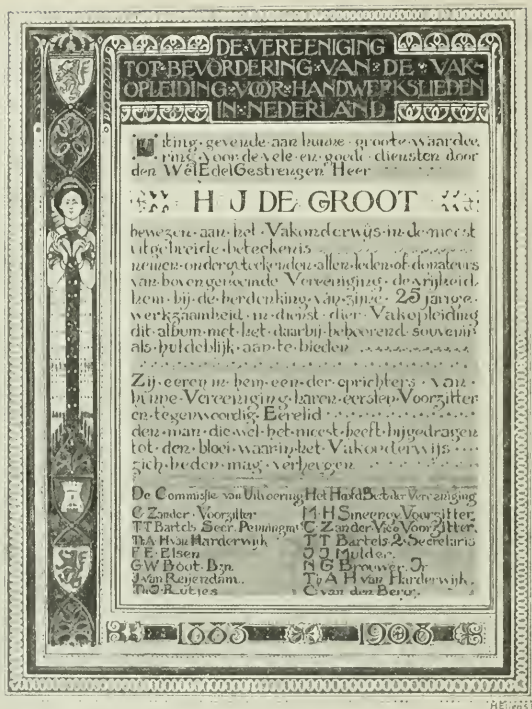 DE·VEREENIGING
TOT·BEVORDERING·VAN·DE·VAK-
OPLEIDING·VOOR·HANDWERKSLIEDEN
IN·NEDERLAND
Uiting·gevende·aan·hunne·groote·waardee
ring·voor·de·vele·en·goede·diensten·door
den WelEdelGestrengen Heer
H J DE GROOT
bewezen·aan·het·Vakonderwijs·in·de·meest
uitgebreide·beteekenis
nemen·ondergeteekenden·allen·leden·of·donateurs
van·bovengenoemde·Vereeniging·de·vrijheid
hem·bij·de·herdenking·van·zijne·25 jarige
werkzaamheid·in·dienst·dier·Vakopleiding
dit·album·met·het·daarbij·behoorend·souvenir
als·huldeblijk·aan·te·bieden
Zij·eeren·in·hem·een·der·oprichters·van
hunne·Vereeniging·haren·eersten·Voorzitter
en·tegenwoordig·Eerelid
den·man·die·wel·het·meest·heeft·bijgedragen
tot·den·bloei·waarin·het·Vakonderwijs
zich·heden·mag·verheugen
De Commissie van Uitvoering
C Zander·Voorzitter
TT Bartels Secr. Penningmr
Th A H van Harderwijk
F E Elsen
G W Boot Bzn.
J van Reijendam.
Th J Rutjes
Het Hoofd Best der Vereeniging
M·H Smeeney Voorzitter
C Zander Vice Voorzitter.
T T Bartels 2e Secretaris
J J Mulder.
N G Brouwer Jr
Th A H van Harderwijk.
C van den Berg.
1883 1908